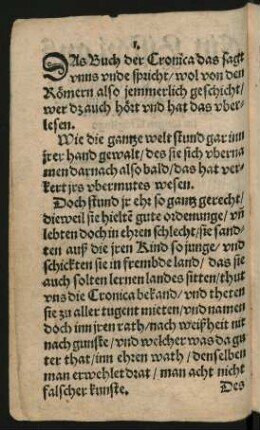 1.
DAs Buch der Cronica das sagt
vnns vnde spricht/ wol von den
Römern also jemmerlich geschicht/
wer dz auch hört vnd hat das vber-
lesen.
Wie die gantze welt stund gar inn
jrer hand gewalt/ des sie sich vberna
men darnach also bald/ das hat ver-
kert jrs vbermutes wesen.
Doch stund jr eht so gantz gerecht/
dieweil sie hieltē gute ordenunge/ vñ
lebten doch in ehren schlecht/ sie sand-
ten auß die jren Kind so junge/ vnd
schickten sie in frembde land/ das sie
auch solten lernen landes sitten/ thut
vns die Cronica bekand/ vnd theten
sie zu aller tugent mieten/ vnd namen
doch inn jren rath/ nach weißheit nit
nach gunste/ vnd welcher was da gu
ter that/ inn ehren wath/ denselben
man erwehlet drat/ man acht nicht
falscher kunste.
Des